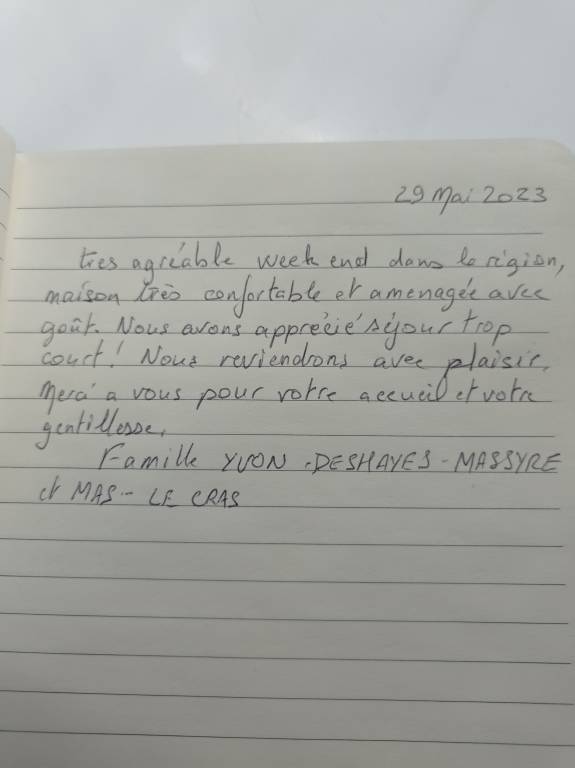 29 Mai 2023
tres agréable week end dans la région,
maison très confortable et amenagée avec
goût. Nous avons apprécié séjour trop
court! Nous reviendrons avec plaisir.
Merci a vous pour votre accueil et votre
gentillesse,
Famille YVON - DESHAYES - MASSYRE
et MAS - LE CRAS